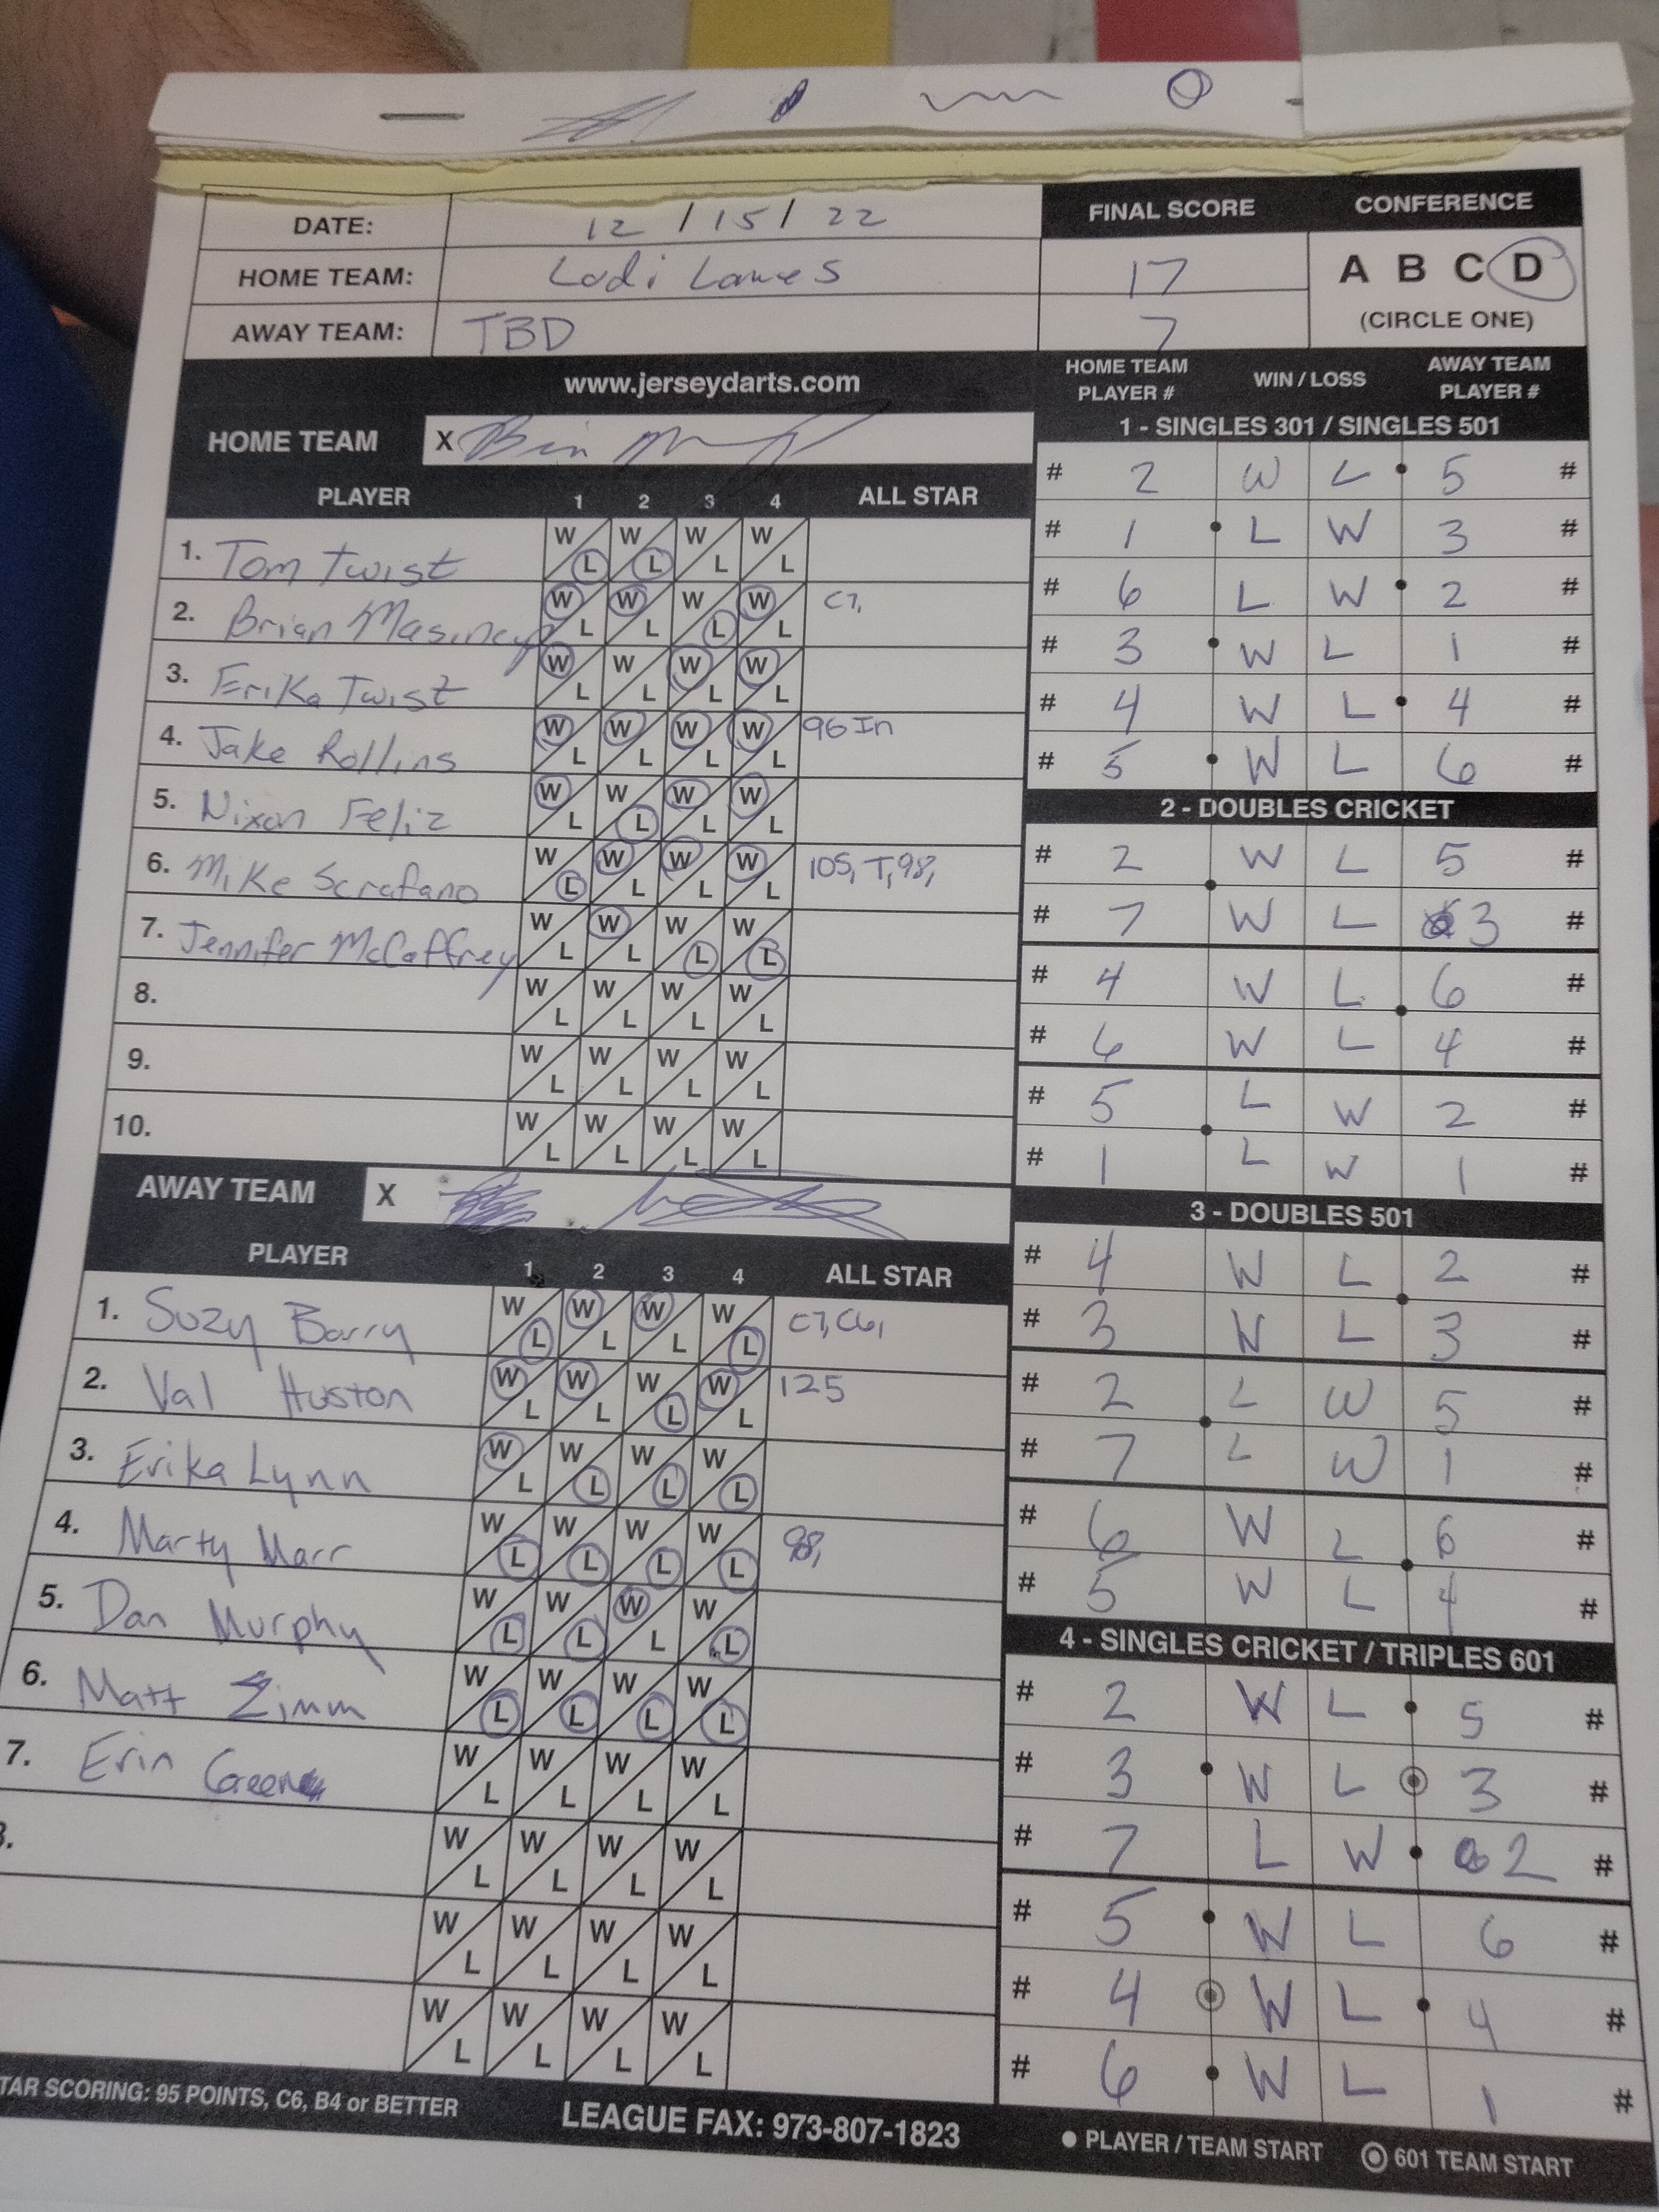 DATE: 12 / 15 / 22
FINAL SCORE CONFERENCE
HOME TEAM: Lodi Lanes 17
A B C D
AWAY TEAM: TBD 7
(CIRCLE ONE)
www.jerseydarts.com
HOME TEAM X
PLAYER 1 2 3 4 ALL STAR
1. Tom Twist W L W L W L W L
2. Brian Masincup W L W L W L W L C7,
3. Erika Twist W L W L W L W L
4. Jake Rollins W L W L W L W L 96 In
5. Nixon Feliz W L W L W L W L
6. Mike Scrafano W L W L W L W L 105, T, 98,
7. Jennifer McCaffrey W L W L W L W L
8. W L W L W L W L
9. W L W L W L W L
10. W L W L W L W L
AWAY TEAM X
PLAYER 1 2 3 4 ALL STAR
1. Suzy Barry W L W L W L W L C7, C6,
2. Val Huston W L W L W L W L 125
3. Erika Lynn W L W L W L W L
4. Marty Marr W L W L W L W L 98,
5. Dan Murphy W L W L W L W L
6. Matt Zimm W L W L W L W L
7. Erin Green W L W L W L W L
W L W L W L W L
W L W L W L W L
W L W L W L W L
HOME TEAM PLAYER # WIN / LOSS AWAY TEAM PLAYER #
1 - SINGLES 301 / SINGLES 501
# 2 W L 5 #
# 1 L W 3 #
# 6 L W 2 #
# 3 W L 1 #
# 4 W L 4 #
# 5 W L 6 #
2 - DOUBLES CRICKET
# 2 W L 5 #
# 7 W L 3 #
# 4 W L 6 #
# 6 W L 4 #
# 5 L W 2 #
# 1 L W 1 #
3 - DOUBLES 501
# 4 W L 2 #
# 3 W L 3 #
# 2 L W 5 #
# 7 L W 1 #
# 6 W L 6 #
# 5 W L 4 #
4 - SINGLES CRICKET / TRIPLES 601
# 2 W L 5 #
# 3 W L 3 #
# 7 L W 2 #
# 5 W L 6 #
# 4 W L 4 #
# 6 W L 1 #
TAR SCORING: 95 POINTS, C6, B4 or BETTER
LEAGUE FAX: 973-807-1823
PLAYER / TEAM START 601 TEAM START